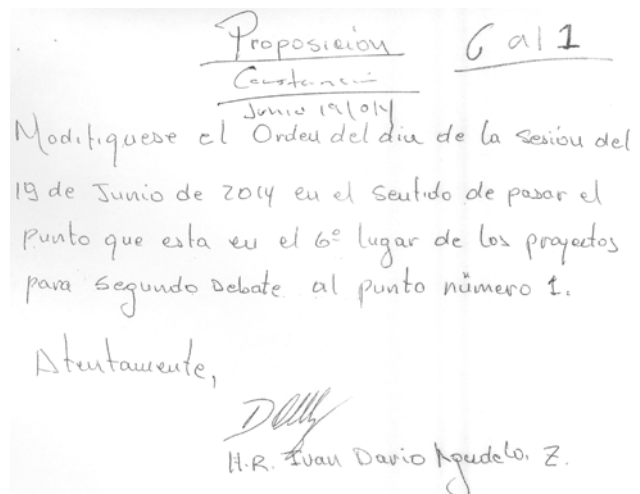 Proposición 6 al 1
Constancia
Junio 19/014
Modifiquese el Orden del dia de la Sesión del
19 de Junio de 2014 en el sentido de pasar el
punto que esta en el 6º lugar de los proyectos
para Segundo Debate al punto número 1.
Atentamente,
H.R. Ivan Dario Agudelo. Z.